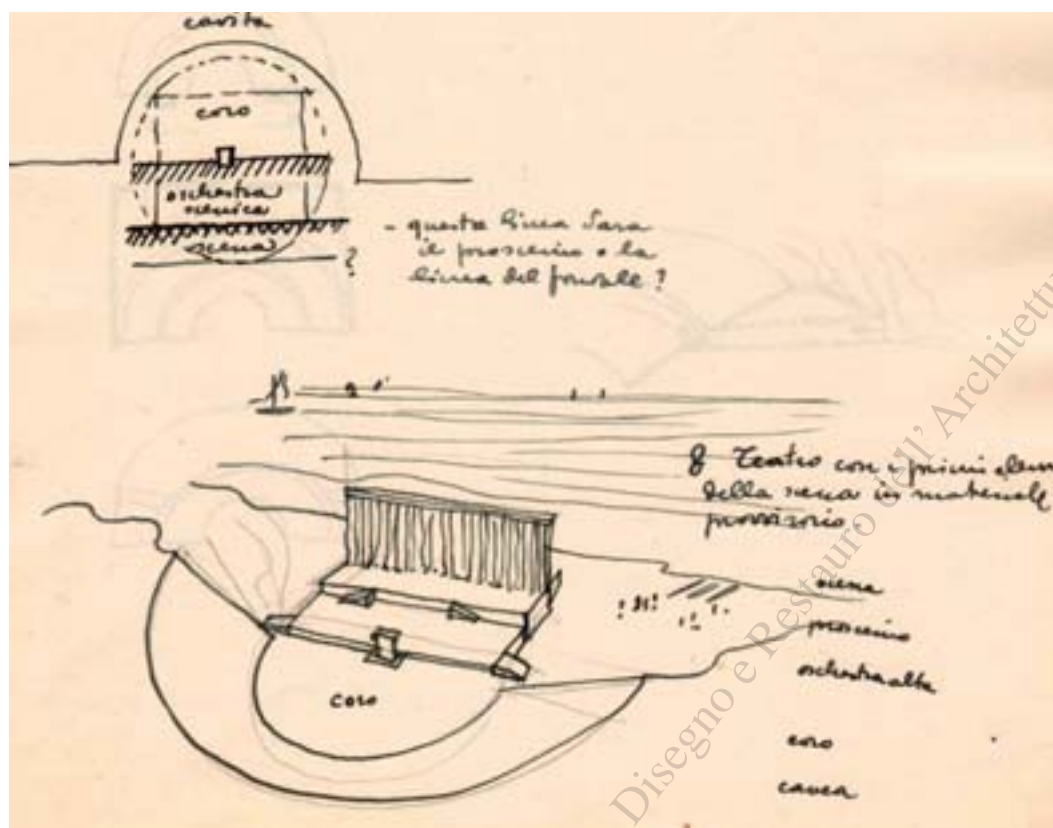 cavità
coro
orchestra
scenica
scena
?
- questa linea sara
il proscenio o la
linea del fondale ?
8 Teatro con i primi elem
della scena in materiale
provvisorio
scena
proscenio
orchestra alta
coro
coro
cavea
Disegno e Restauro dell'Architettu